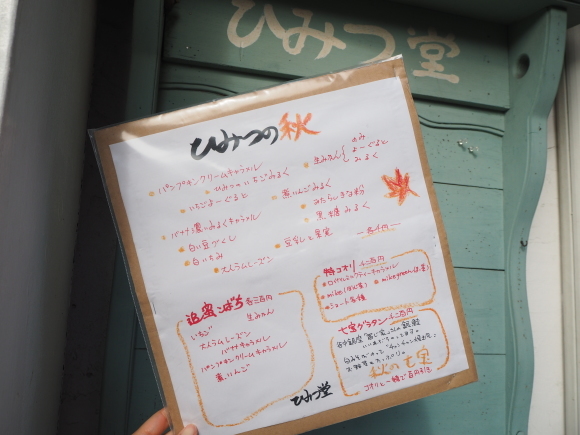 ひみつ堂
ひみつの秋
パンプキンクリームキャラメル
ひみつのいちごみるく
いちごよーぐると
生みかん
よーぐると
みるく
バナナ濃いみるくキャラメル
煮りんごみるく
みたらしきな粉
黒糖みるく
白い豆づくし
白いちみ
豆乳と黒蜜
大人ラムレーズン
追蜜こばち 各三百円
いちご
生みかん
大人ラムレーズン
バナナキャラメル
パンプキンクリームキャラメル
煮りんご
特コオリ 千二百円
ロイヤルミルクティーキャラメル
ショート各種
七宝グラタン 千二百円
秋の七宝
コオリと一緒で百円引き
ひみつ堂